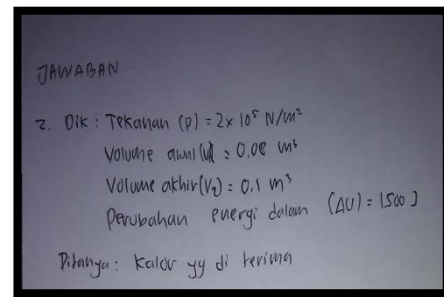 JAWABAN
2. Dik : Tekanan (P) = 2x 10⁵ N/m²
Volume awal (V₁) = 0,08 m³
Volume akhir (V₂) = 0,1 m³
Perubahan energi dalam (ΔU) = 1500 J
Ditanya : Kalor yg di terima